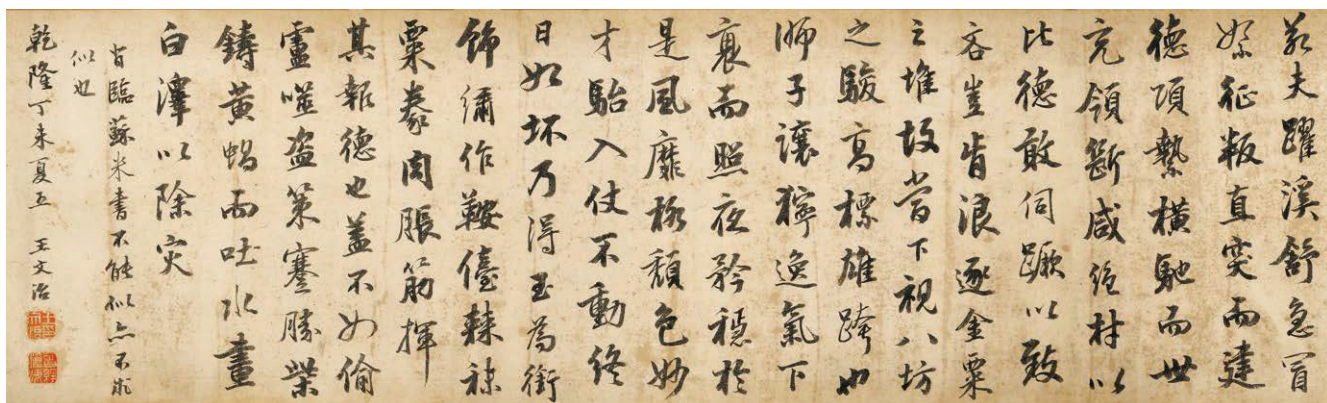 若夫躍溪舒急冒
絮征叛直突而建
德項縶橫馳而世
充領斷咸絕材以
比德敢伺蹶以致
吝豈肯浪逐金粟
之堆故當下視八坊
之駿高標雄跨也
獅子讓獰逸氣下
衰而照夜矜穩於
是風靡格頹色妙
才駘入仗不動終
日如坏乃得玉為銜
飾繡作鞍儓棘秣
粟豢肉脹筋揮
其報德也蓋不如偷
盧噬盜策蹇勝柴
鑄黃蝸而吐水畫
白澤以除災
昔臨蘇米書不能似亦不求
似也
乾隆丁未夏五 王文治